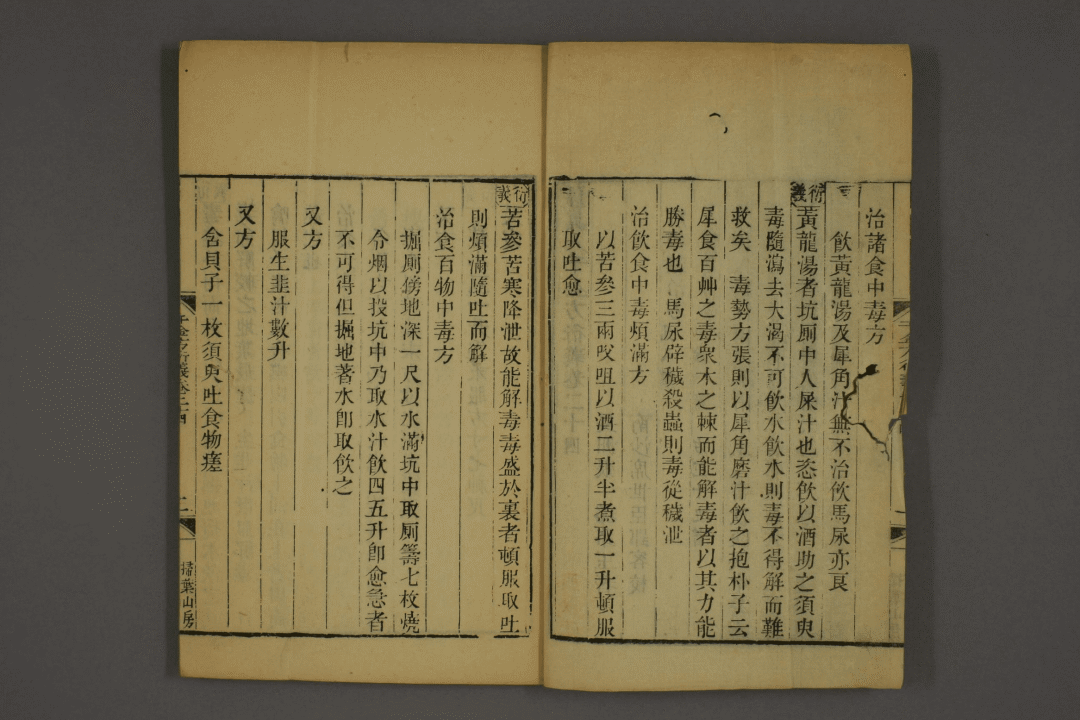 治諸食中毒方
飲黃龍湯及犀角汁無不治飲馬尿亦良
衍義黃龍湯者坑厠中人屎汁也恣飲以酒助之須臾
毒隨瀉去大渴不可飲水飲水則毒不得解而難
救矣 毒勢方張則以犀角磨汁飲之抱朴子云
犀食百艸之毒衆木之棘而能解毒者以其力能
勝毒也 馬尿辟穢殺蟲則毒從穢泄
治飲食中毒煩滿方
以苦參三兩㕮咀以酒二升半煮取一升頓服
取吐愈
衍義苦參苦寒降泄故能解毒毒盛於裏者頓服取吐
則煩滿隨吐而解
治食百物中毒方
掘厠傍地深一尺以水滿坑中取厠籌七枚燒
令烟以投坑中乃取水汁飲四五升卽愈急者
不可得但掘地著水卽取飲之
又方
服生韭汁數升
又方
含貝子一枚須臾吐食物瘥
千金方衍義卷二十四
二
掃葉山房